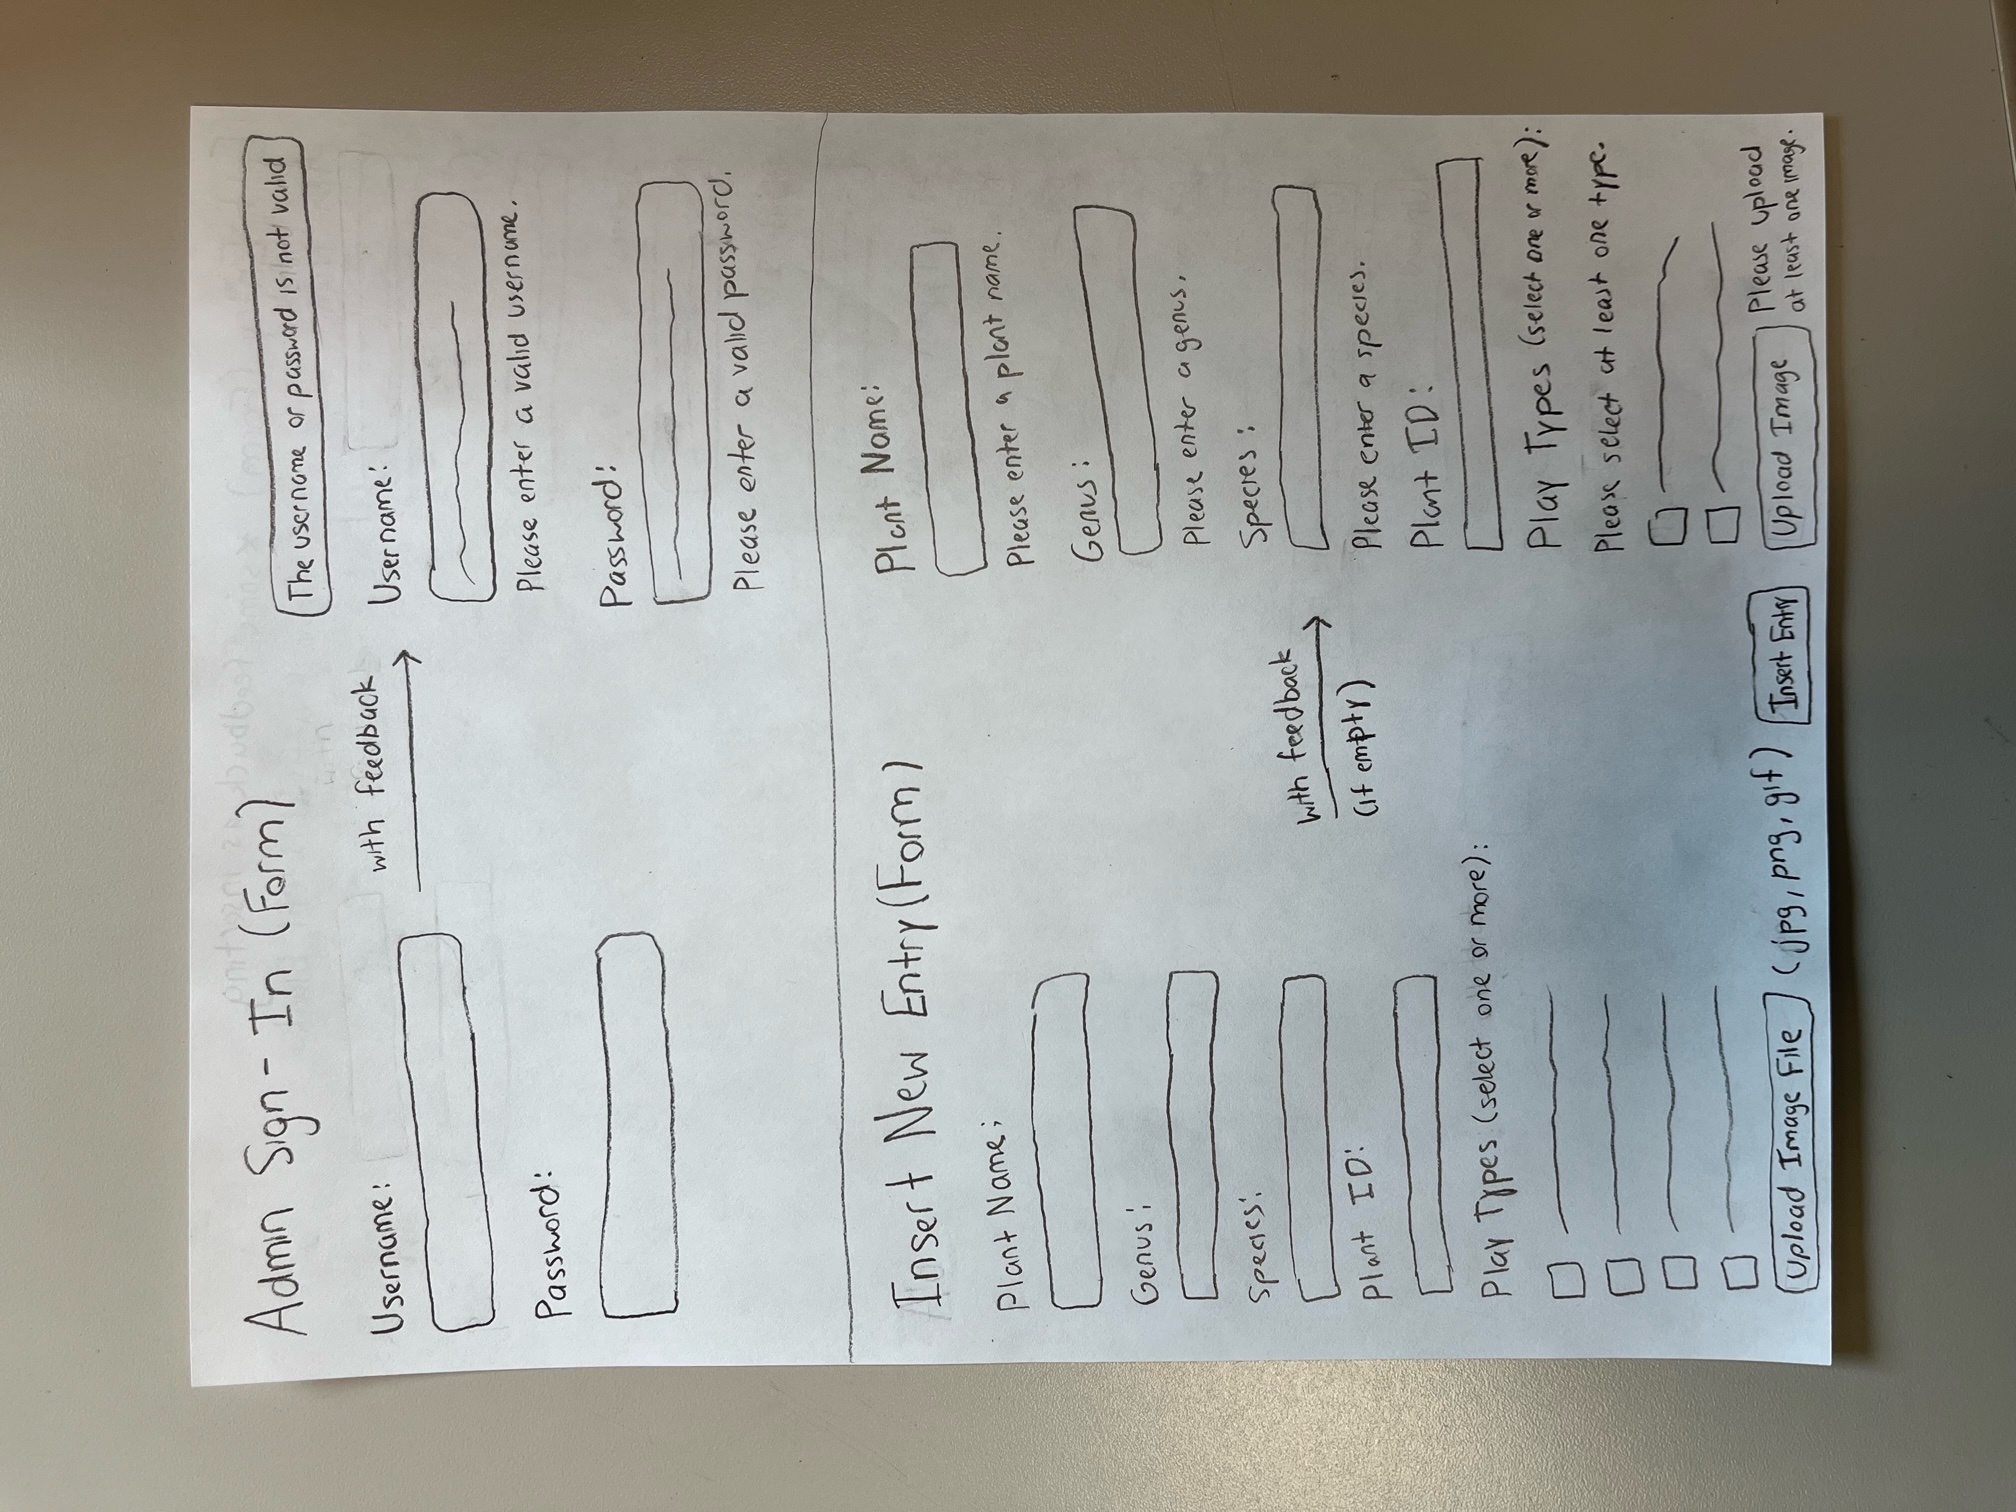 Admin Sign-In (Form)
Username:
Password:
with feedback
The username or password is not valid
Username:
Please enter a valid username.
Password:
Please enter a valid password.
Insert New Entry (Form)
Plant Name:
Genus:
Species:
Plant ID:
Play Types (select one or more):
Upload Image File (jpg, png, gif) Insert Entry
with feedback
(if empty)
Plant Name:
Please enter a plant name.
Genus:
Please enter a genus.
Species:
Please enter a species.
Plant ID:
Play Types (select one or more):
Please select at least one type.
Upload Image
Please upload
at least one image.